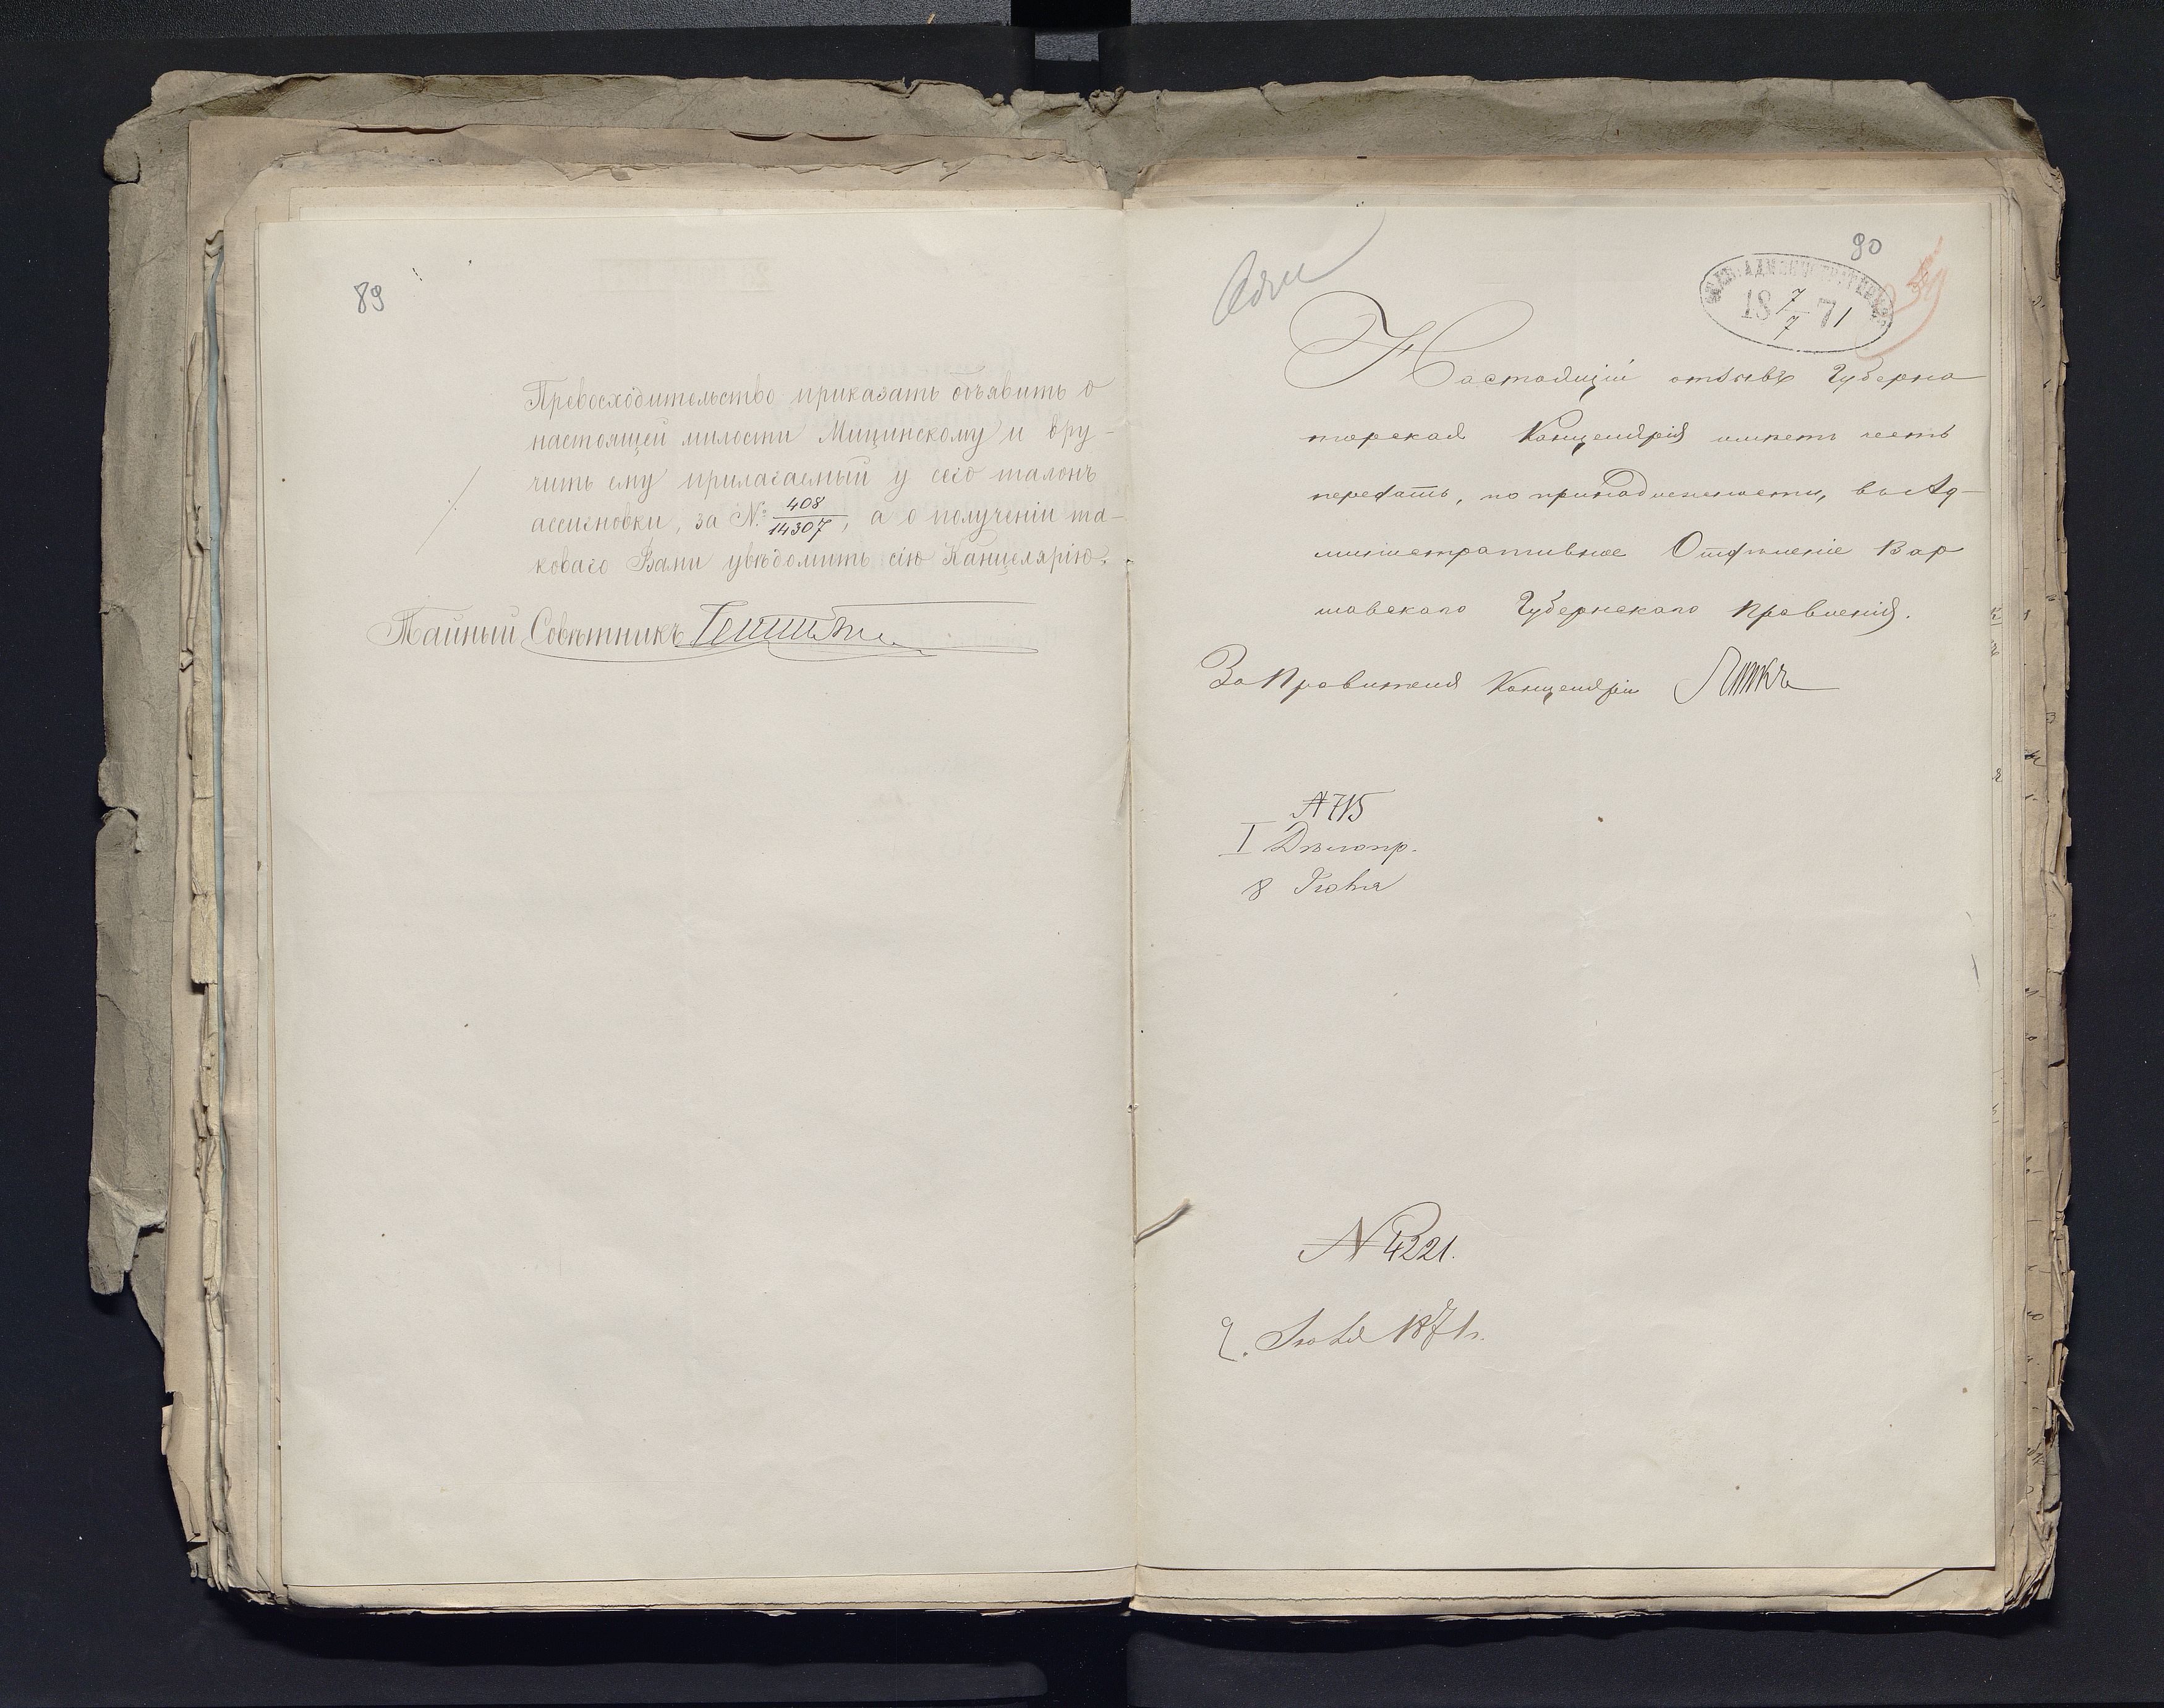 89
Превосходительство приказать объявить о
настоящей милости Мицинскому и вру-
чить ему прилагаемый у сего талонъ
ассигновки, за №: 408/14307, а о полученіи та-
коваго Вами увѣдомить сію Канцелярію.
Тайный Совѣтникъ
90
18 7/7 71
Настоящій отзывъ Губерна
торская Канцелярія имѣетъ честь
передать, по принадлежности, въ Ад-
министративное Отдѣленіе Вар
шавскаго Губернскаго Правленія.
За Правителя Канцеляріи
№ 715
I Дѣлопр.
8 Іюля
№ 4221.
Іюля 1871 г.